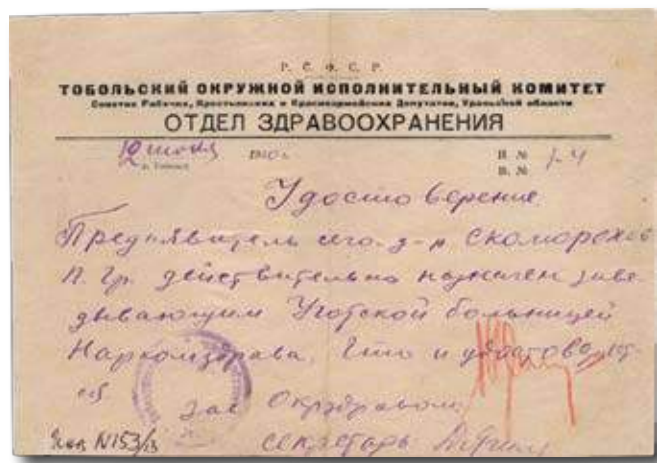 Р. С. Ф. С. Р.
ТОБОЛЬСКИЙ ОКРУЖНОЙ ИСПОЛНИТЕЛЬНЫЙ КОМИТЕТ
Советов Рабочих, Крестьянских и Красноармейских Депутатов, Уральской области
ОТДЕЛ ЗДРАВООХРАНЕНИЯ
12 1930 г. И. № 1-4
г. Тобольск В. №
Удостоверение
Предъявитель сего д-р Скоморохов
П. Гр. действительно назначен заве-
дывающим больницей
Наркомздрава, что и удостоверяет-
ся
Зав Окрздравом
секретарь
N153/13